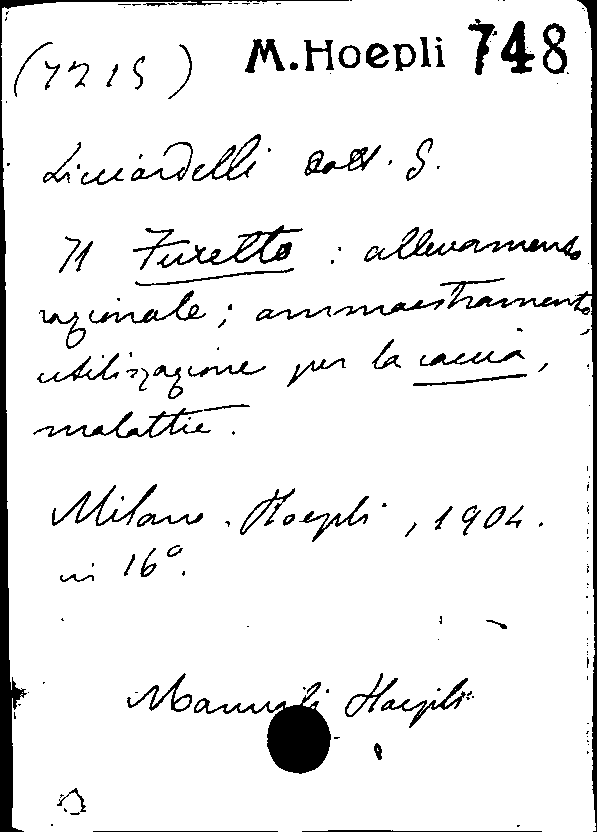 (7215) M.Hoepli 748
Licciardelli dott. G.
Il Furetto : allevamento
razionale ; ammaestramento,
utilizzazione per la caccia,
malattie.
Milano. Hoepli, 1904.
in 16°.
Manuali Hoepli